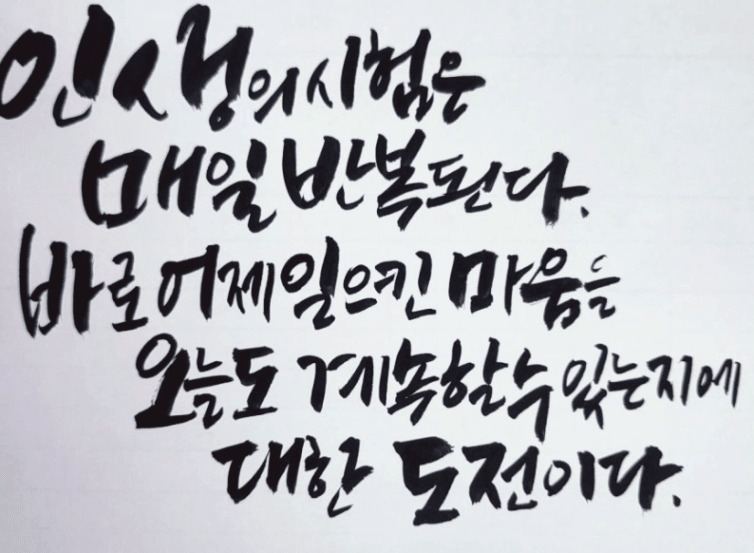 인생의 시험은
매일 반복된다.
바로 어제 일으킨 마음을
오늘도 계속할 수 있는지에
대한 도전이다.